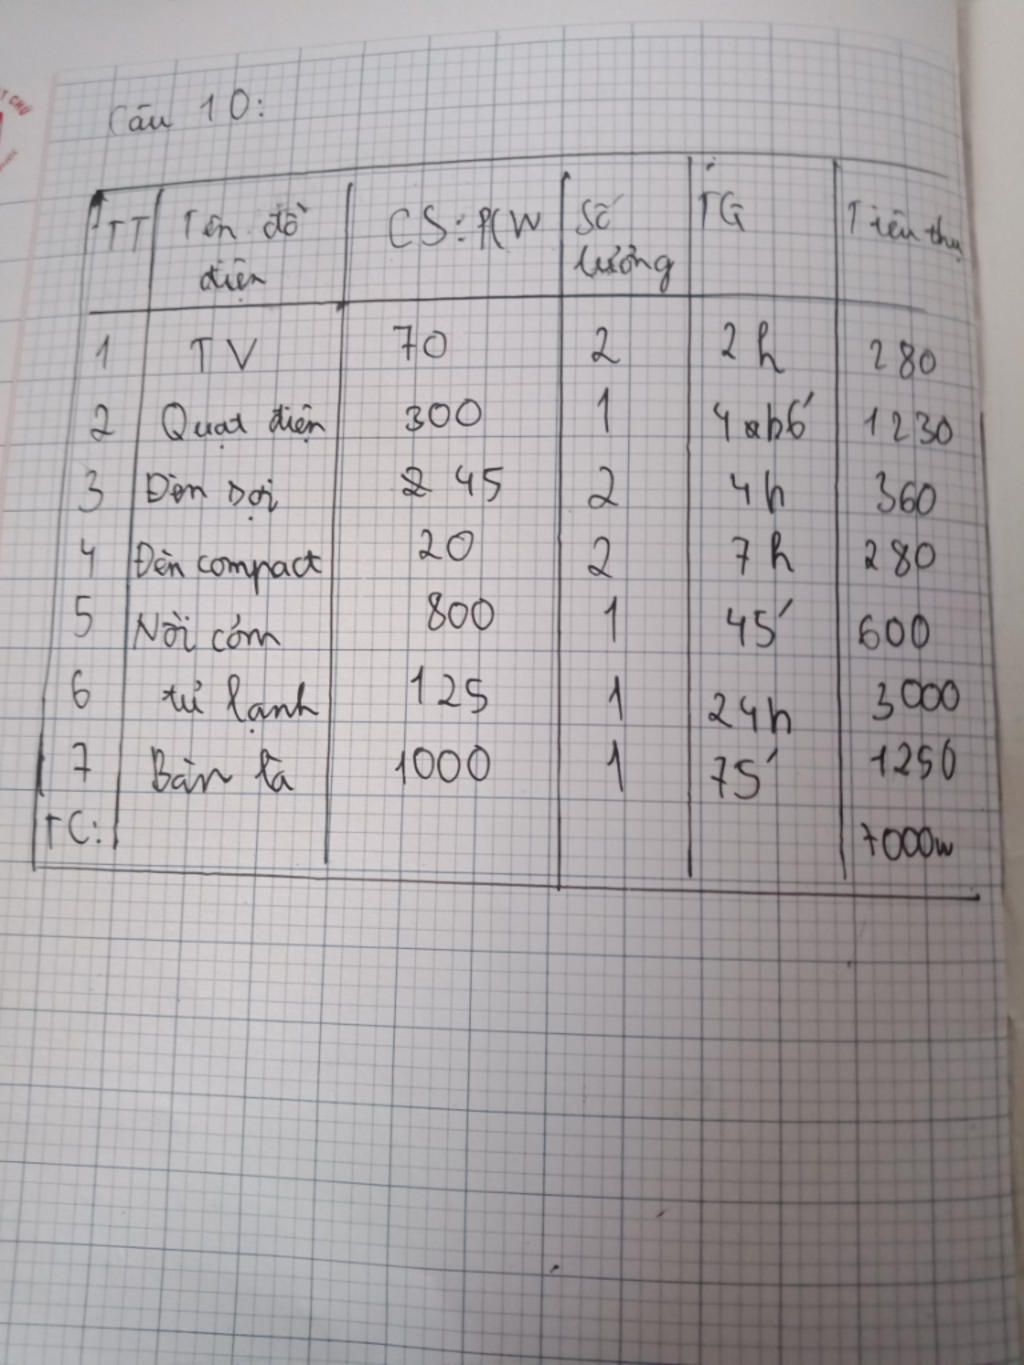 Câu 10:
TT Tên đồ điện CS: P(W Số lưởng TG Tiêu thụ
1 TV 70 2 2h 280
2 Quạt điện 300 1 1230
3 Đèn sợi 45 2 4h 360
4 Đèn compact 20 2 7h 280
5 Nồi cơm 800 1 45' 600
6 tủ lạnh 125 1 24h 3000
7 Bàn là 1000 1 75' 1250
TC: 7000w